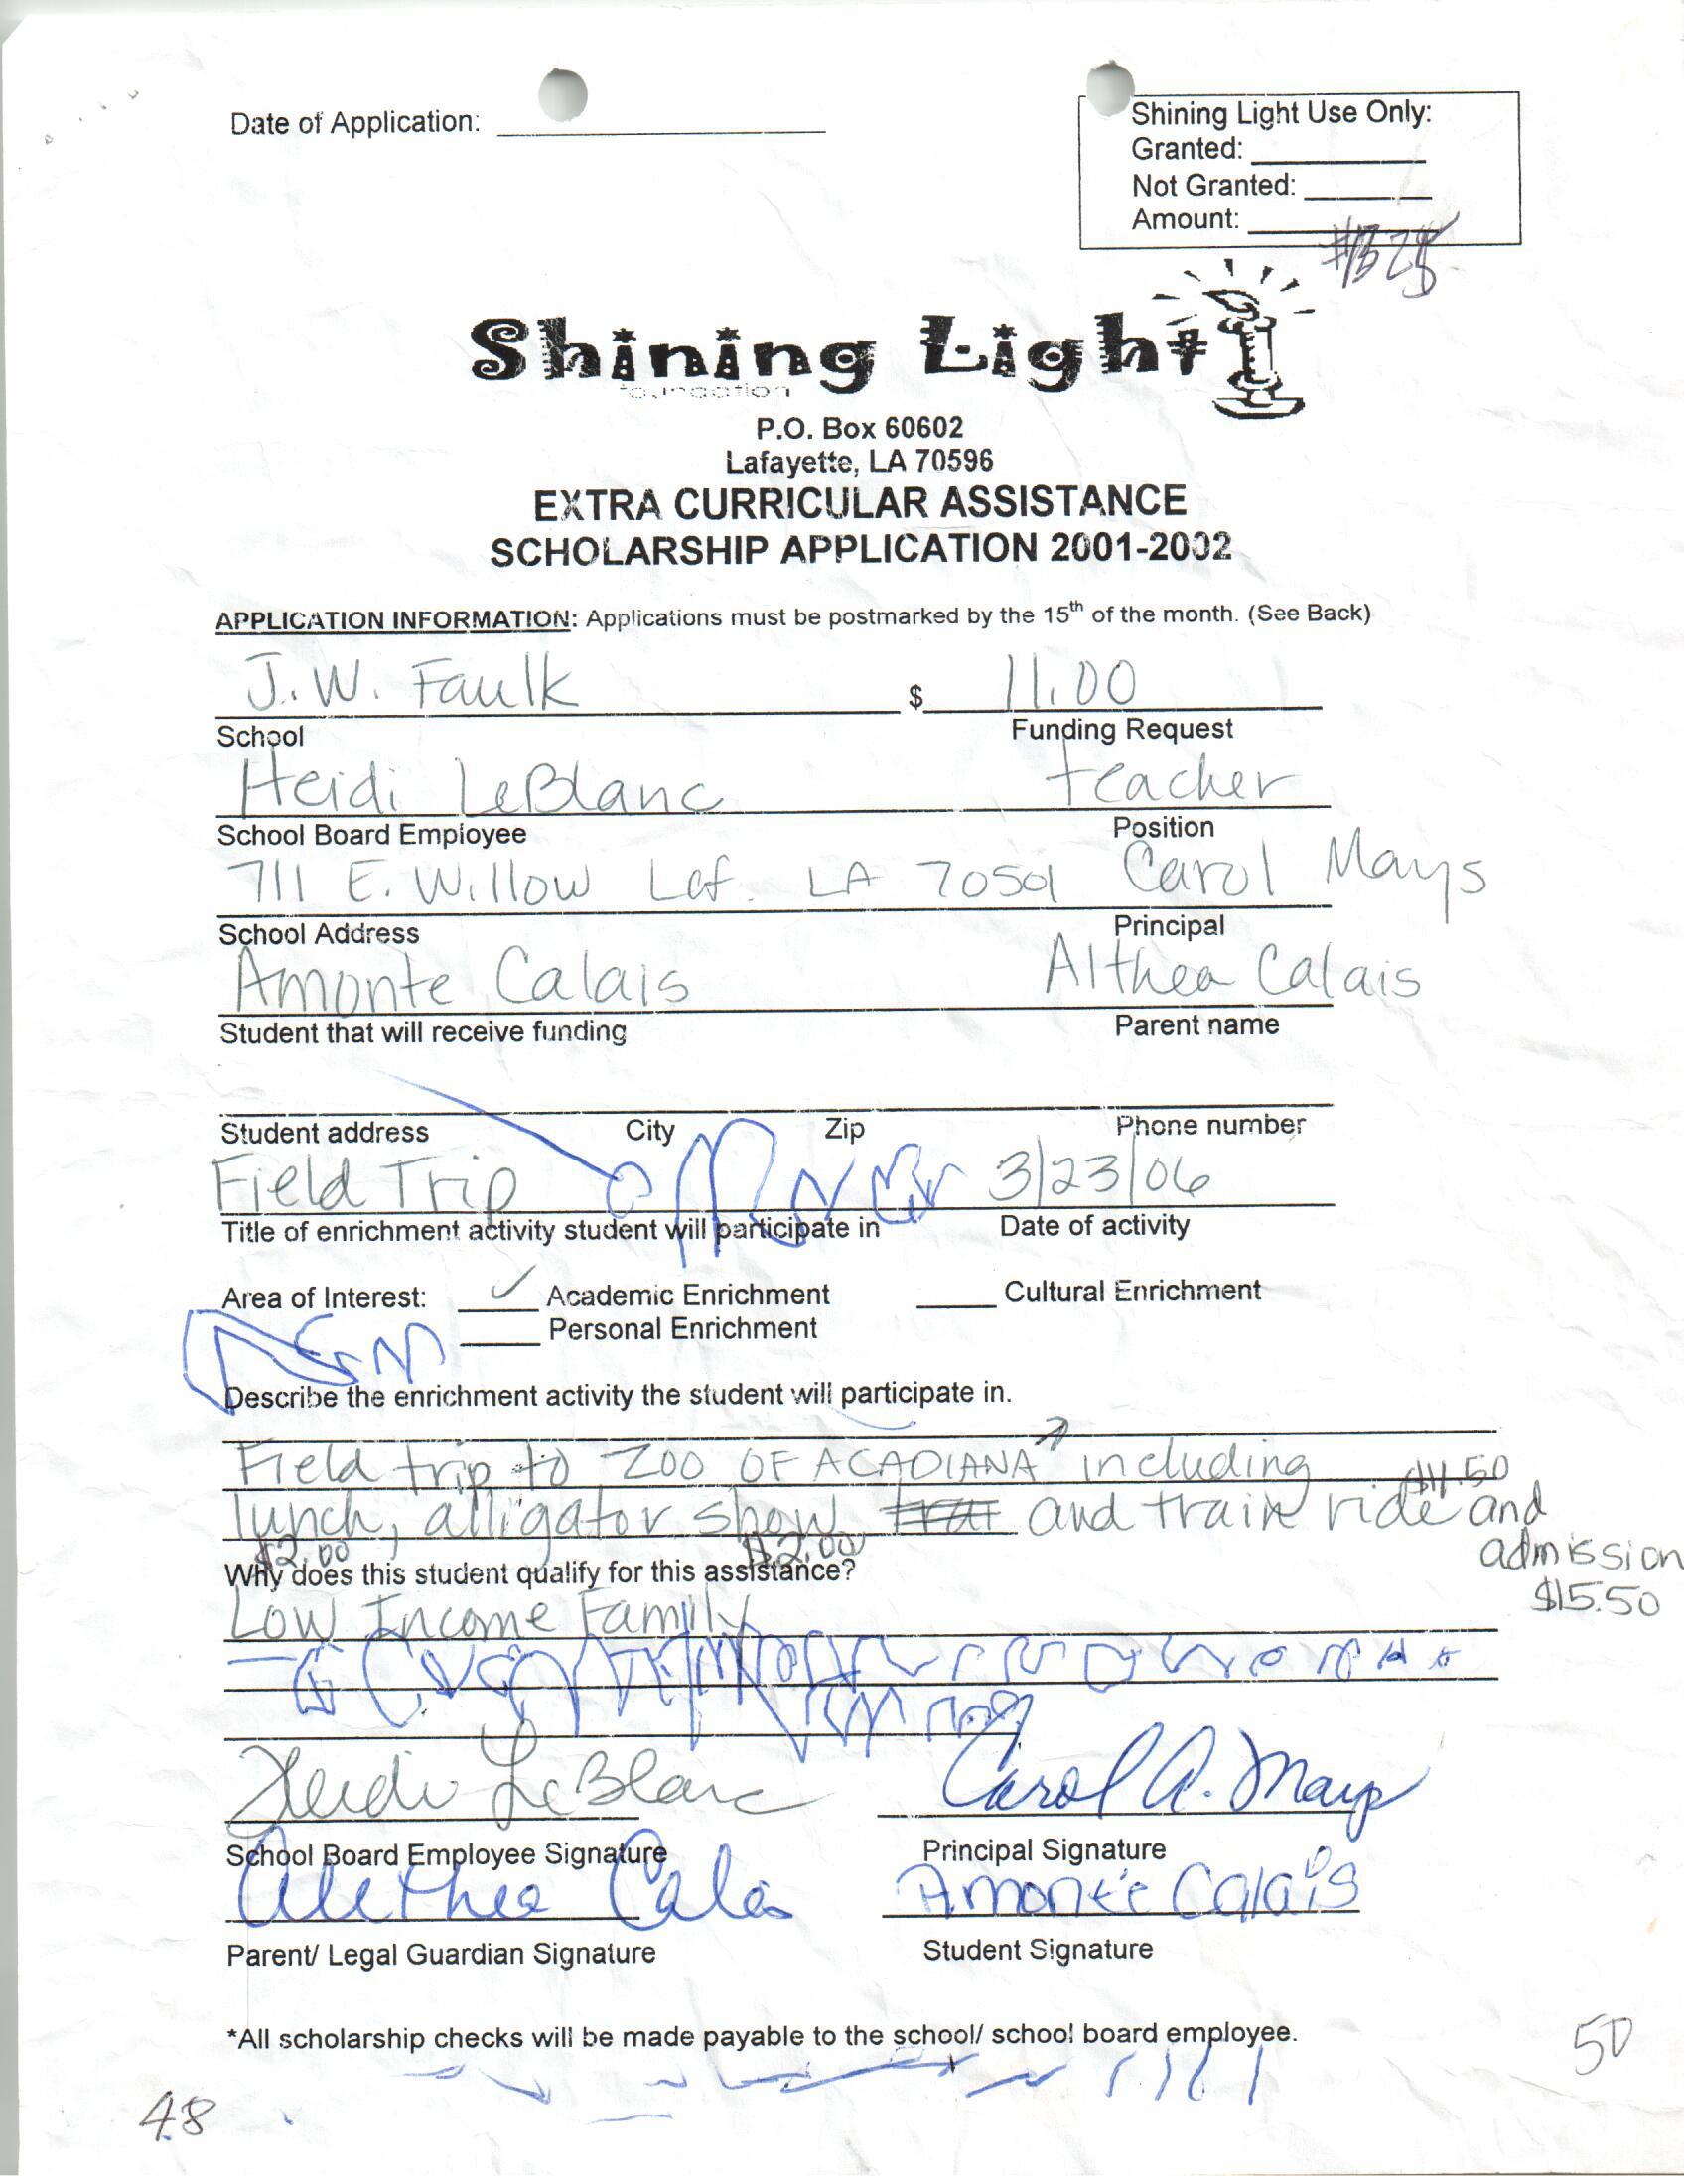 Date of Application:
Shining Light Use Only:
Granted:
Not Granted:
Amount:
Shining Light
foundation
P.O. Box 60602
Lafayette, LA 70596
EXTRA CURRICULAR ASSISTANCE
SCHOLARSHIP APPLICATION 2001-2002
APPLICATION INFORMATION: Applications must be postmarked by the 15th of the month. (See Back)
J.W. Faulk $ 11.00
School Funding Request
Heidi LeBlanc teacher
School Board Employee Position
711 E. Willow Laf. LA 70501 Carol Mays
School Address Principal
Amonte Calais Althea Calais
Student that will receive funding Parent name
Student address City Zip Phone number
Field Trip 3/23/06
Title of enrichment activity student will participate in Date of activity
Area of Interest: ✓ Academic Enrichment Cultural Enrichment
Personal Enrichment
Describe the enrichment activity the student will participate in.
Field trip to ZOO OF ACADIANA including
lunch, alligator show and train ride and
admission
$2.00 $2.00
$15.50
Why does this student qualify for this assistance?
Low Income Family
Heidi LeBlanc Carol A. Mays
School Board Employee Signature Principal Signature
Amonte Calais
Parent/ Legal Guardian Signature Student Signature
*All scholarship checks will be made payable to the school/ school board employee.
50
48